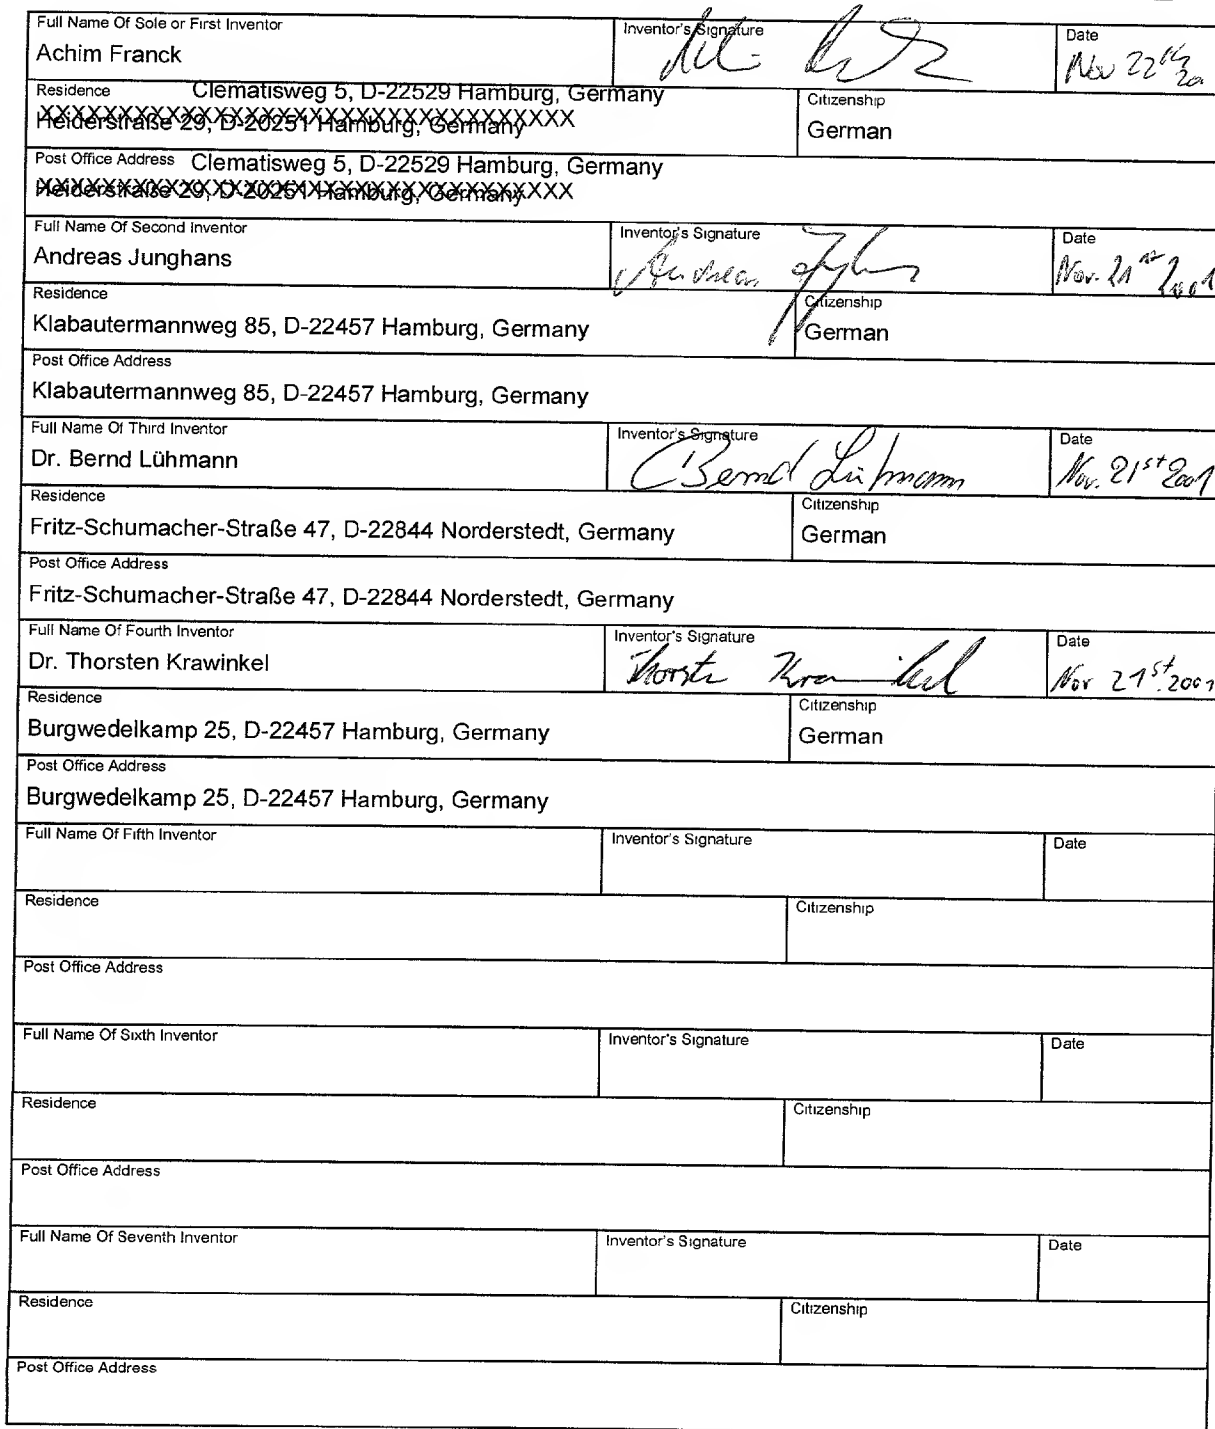 Full Name Of Sole or First Inventor
Achim Franck
Inventor's Signature
Date
Nov 22
Residence Clematisweg 5, D-22529 Hamburg, Germany
Heiderstraße 29, D-20251 Hamburg, Germany
Citizenship
German
Post Office Address Clematisweg 5, D-22529 Hamburg, Germany
Heiderstraße 29, D-20251 Hamburg, Germany
Full Name Of Second Inventor
Andreas Junghans
Inventor's Signature
Andreas
Date
Nov. 21st 2001
Residence
Klabautermannweg 85, D-22457 Hamburg, Germany
Citizenship
German
Post Office Address
Klabautermannweg 85, D-22457 Hamburg, Germany
Full Name Of Third Inventor
Dr. Bernd Lühmann
Inventor's Signature
Bernd Lühmann
Date
Nov. 21st 2001
Residence
Fritz-Schumacher-Straße 47, D-22844 Norderstedt, Germany
Citizenship
German
Post Office Address
Fritz-Schumacher-Straße 47, D-22844 Norderstedt, Germany
Full Name Of Fourth Inventor
Dr. Thorsten Krawinkel
Inventor's Signature
Thorsten Krawinkel
Date
Nov 21st 2001
Residence
Burgwedelkamp 25, D-22457 Hamburg, Germany
Citizenship
German
Post Office Address
Burgwedelkamp 25, D-22457 Hamburg, Germany
Full Name Of Fifth Inventor
Inventor's Signature
Date
Residence
Citizenship
Post Office Address
Full Name Of Sixth Inventor
Inventor's Signature
Date
Residence
Citizenship
Post Office Address
Full Name Of Seventh Inventor
Inventor's Signature
Date
Residence
Citizenship
Post Office Address